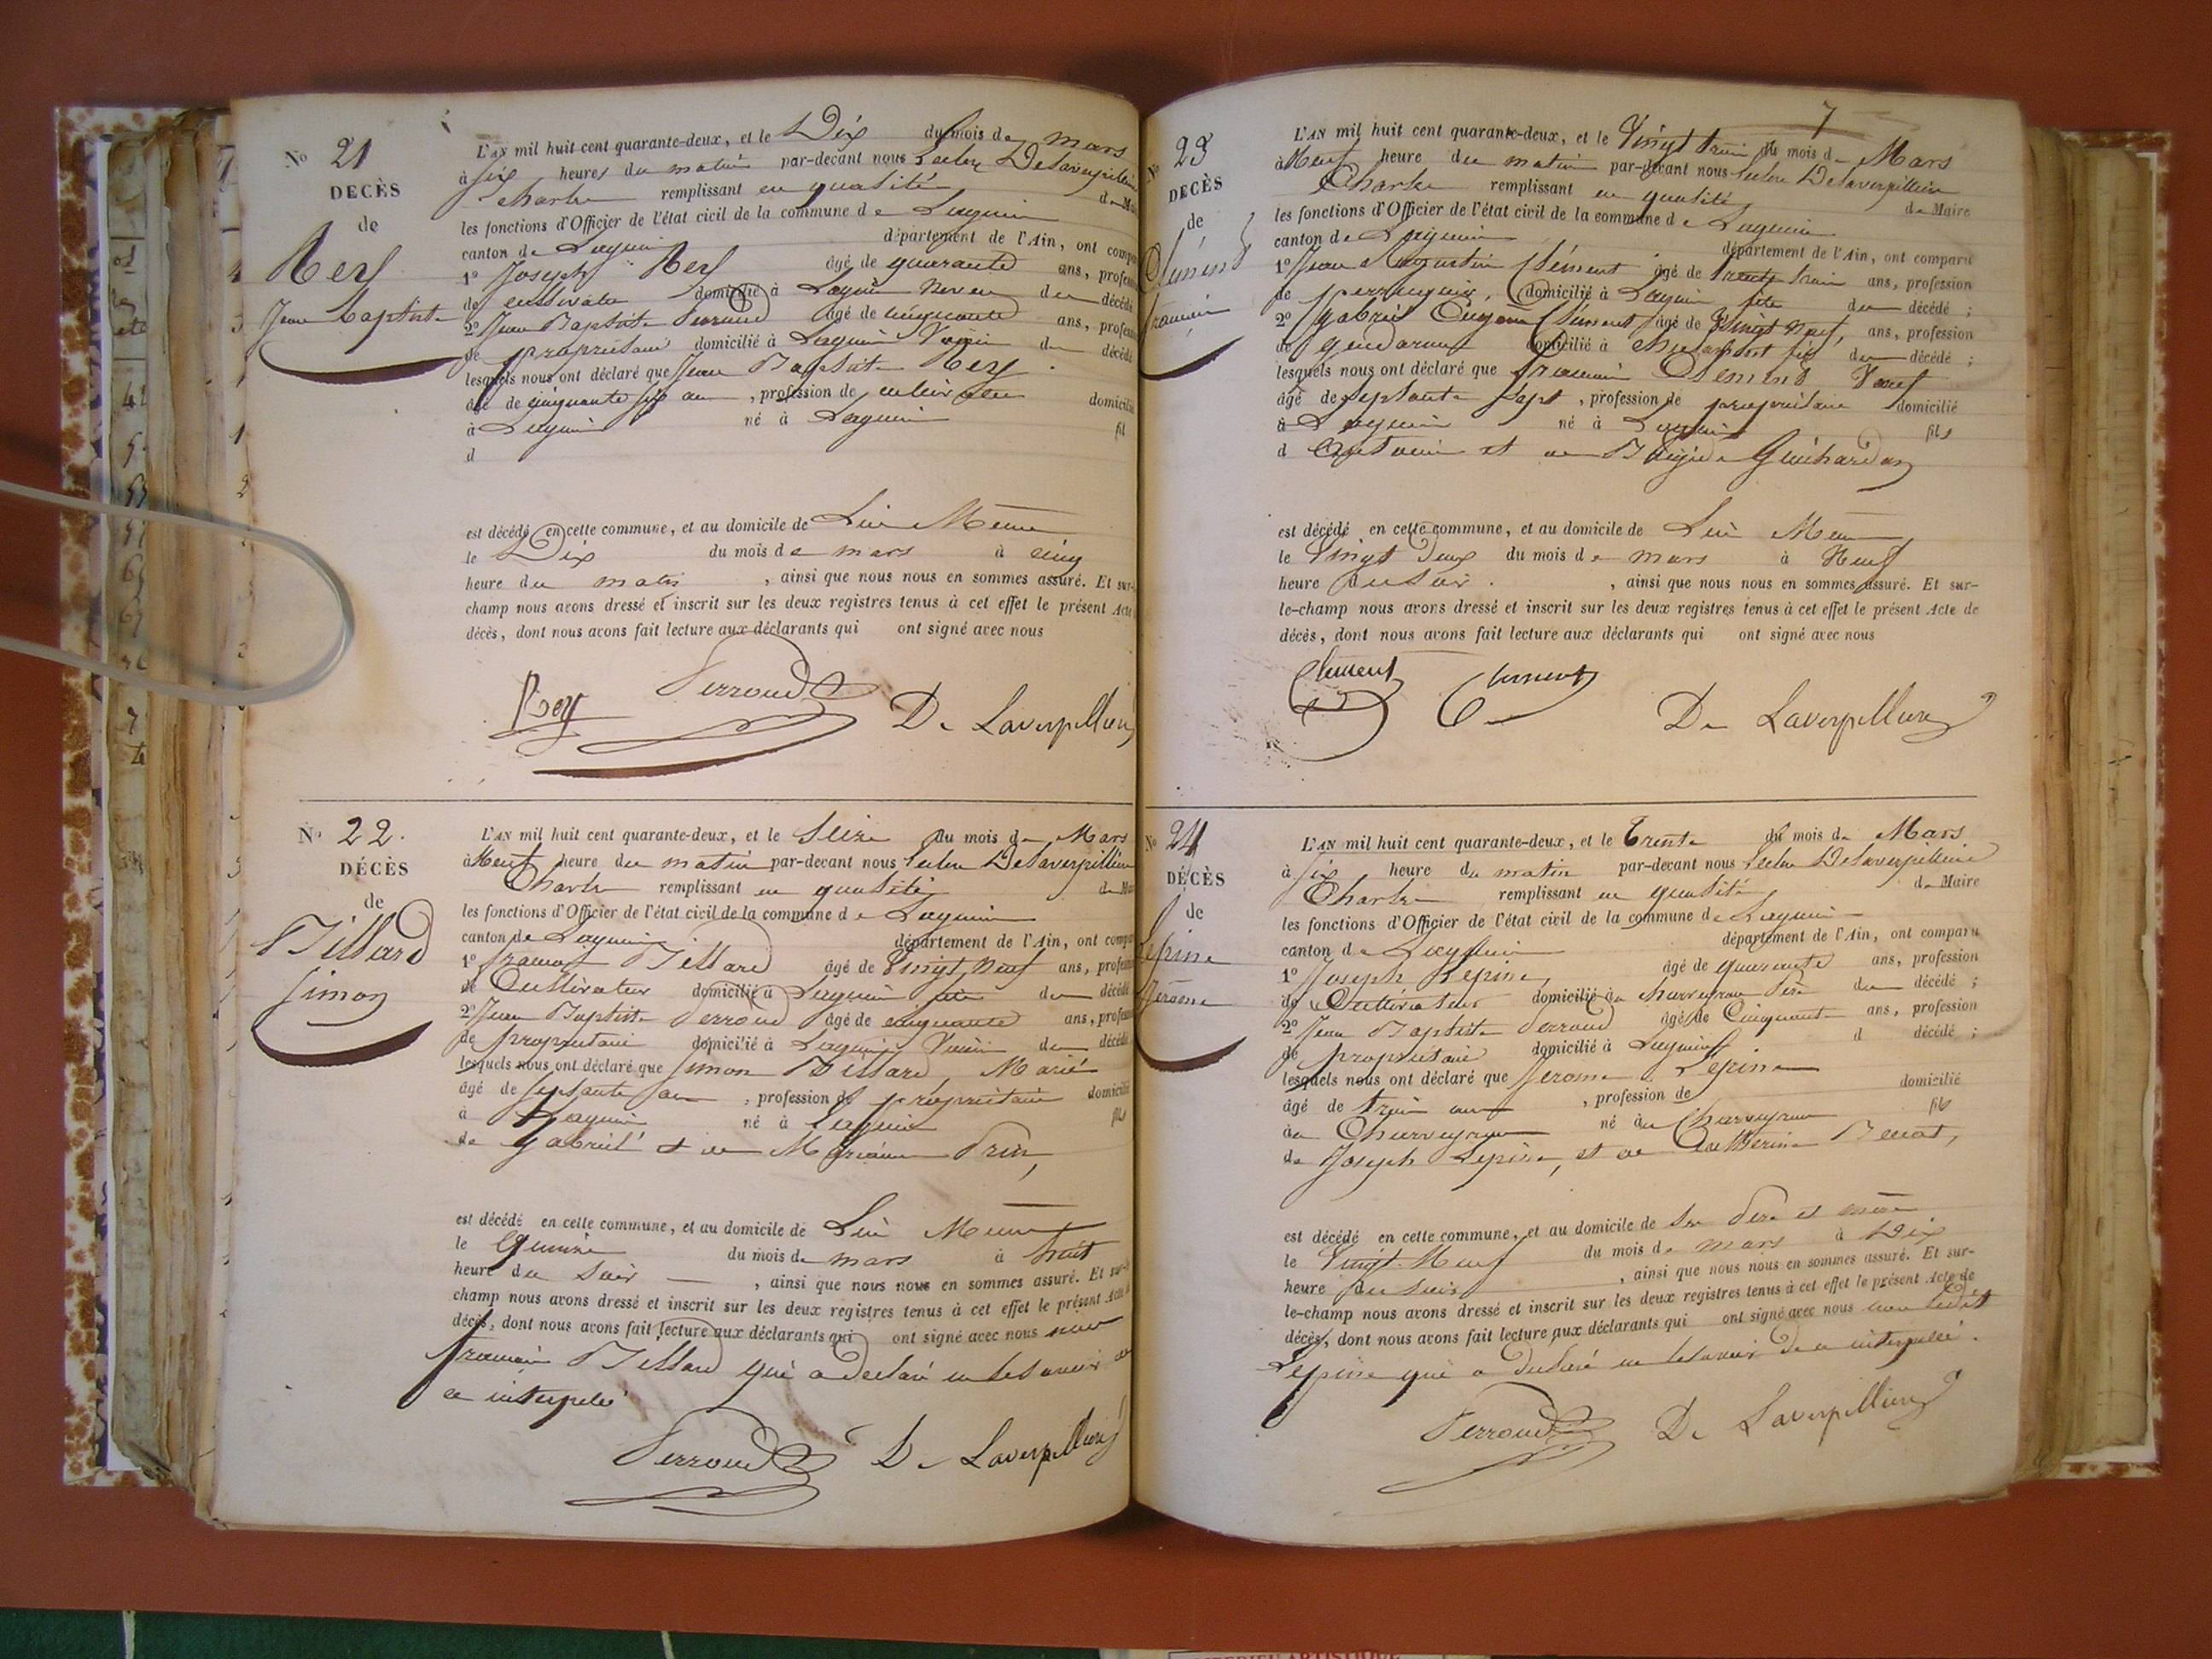 N° 21
DECÈS
de
Rey
Jean Baptiste
L'AN mil huit cent quarante-deux, et le Dix du mois de mars
à six heures du matin par-devant nous Delaverpillière
Charles remplissant en qualité de
les fonctions d'Officier de l'état civil de la commune de Lagnieu
canton de Lagnieu département de l'Ain, ont
1° Joseph Rey âgé de quarante ans,
de cultivateur domicilié à Lagnieu neveu du décédé
2° Jean Baptiste Perroud âgé de cinquante ans,
de propriétaire domicilié à Lagnieu Voisin du décédé
lesquels nous ont déclaré que Jean Baptiste Rey
âgé de cinquante six ans, profession de cultivateur domicilié
à Lagnieu né à Lagnieu fil
d
est décédé en cette commune, et au domicile de Lui Même
le Dix du mois de mars à cinq
heure du matin, ainsi que nous nous en sommes assuré. Et sur-
champ nous avons dressé et inscrit sur les deux registres tenus à cet effet le présent Acte
décès, dont nous avons fait lecture aux déclarants qui ont signé avec nous
Rey Perroud De Laverpillière
N° 22.
DÉCÈS
de
Billard
Simon
L'AN mil huit cent quarante-deux, et le Seize du mois de Mars
à Neuf heure du matin par-devant nous Delaverpillière
Charles remplissant en qualité de
les fonctions d'Officier de l'état civil de la commune de Lagnieu
canton de Lagnieu département de l'Ain, ont
1° François Billard âgé de Vingt Neuf ans,
de Cultivateur domicilié à Lagnieu fils du décédé
2° Jean Baptiste Perroud âgé de cinquante ans,
de propriétaire domicilié à Lagnieu Voisin du décédé
lesquels nous ont déclaré que Simon Billard, Marié
âgé de septante ans, profession de propriétaire domicilié
à Lagnieu né à Lagnieu fils
de Gabriel et de Mariane
est décédé en cette commune, et au domicile de Lui Même
le Quinze du mois de mars à huit
heure du soir, ainsi que nous nous en sommes assuré. Et sur-
champ nous avons dressé et inscrit sur les deux registres tenus à cet effet le présent Acte
décès, dont nous avons fait lecture aux déclarants qui ont signé avec nous non
François Billard qui a déclaré ne le savoir de
ce interpelé
Perroud De Laverpillière
7
N° 23
DÉCÈS
de
Clément
François
L'AN mil huit cent quarante-deux, et le Vingt trois du mois de Mars
à Neuf heure du matin par-devant nous Delaverpillière
Charles remplissant en qualité de Maire
les fonctions d'Officier de l'état civil de la commune de Lagnieu
canton de Lagnieu département de l'Ain, ont comparu
1° Jean Augustin Clément âgé de trente trois ans, profession
de perruquier, domicilié à Lagnieu fils du décédé ;
2° Gabriel Clément âgé de Vingt Neuf, ans, profession
de gendarme domicilié à fils du décédé ;
lesquels nous ont déclaré que François Clément Veuf
âgé de septante sept, profession de propriétaire domicilié
à Lagnieu né à Lagnieu fils
d Antoine et de Guichardon
est décédé en cette commune, et au domicile de Lui Même
le Vingt Deux du mois de mars à Neuf
heure du soir., ainsi que nous nous en sommes assuré. Et sur-
le-champ nous avons dressé et inscrit sur les deux registres tenus à cet effet le présent Acte de
décès, dont nous avons fait lecture aux déclarants qui ont signé avec nous
Clément Clément De Laverpillière
N° 24
DÉCÈS
de
Lépine
Jérome
L'AN mil huit cent quarante-deux, et le Trente du mois de Mars
à six heure du matin par-devant nous Delaverpillière
Charles remplissant en qualité de Maire
les fonctions d'Officier de l'état civil de la commune de Lagnieu
canton de Lagnieu département de l'Ain, ont comparu
1° Joseph Lépine, âgé de quarante ans, profession
de Cultivateur domicilié à Charveyron Père du décédé ;
2° Jean Baptiste Perroud âgé de Cinquante ans, profession
de propriétaire domicilié à Lagnieu d décédé ;
lesquels nous ont déclaré que Jerome Lépine
âgé de trois ans, profession de domicilié
à Charveyron né à Charveyron fils
de Joseph Lépine, et de Catherine
est décédé en cette commune, et au domicile de Ses Père et mère
le Vingt Neuf du mois de mars à Dix
heure du soir, ainsi que nous nous en sommes assuré. Et sur-
le-champ nous avons dressé et inscrit sur les deux registres tenus à cet effet le présent Acte de
décès, dont nous avons fait lecture aux déclarants qui ont signé avec nous non ledit
Lépine qui a déclaré ne le savoir de ce interpellé.
Perroud De Laverpillière